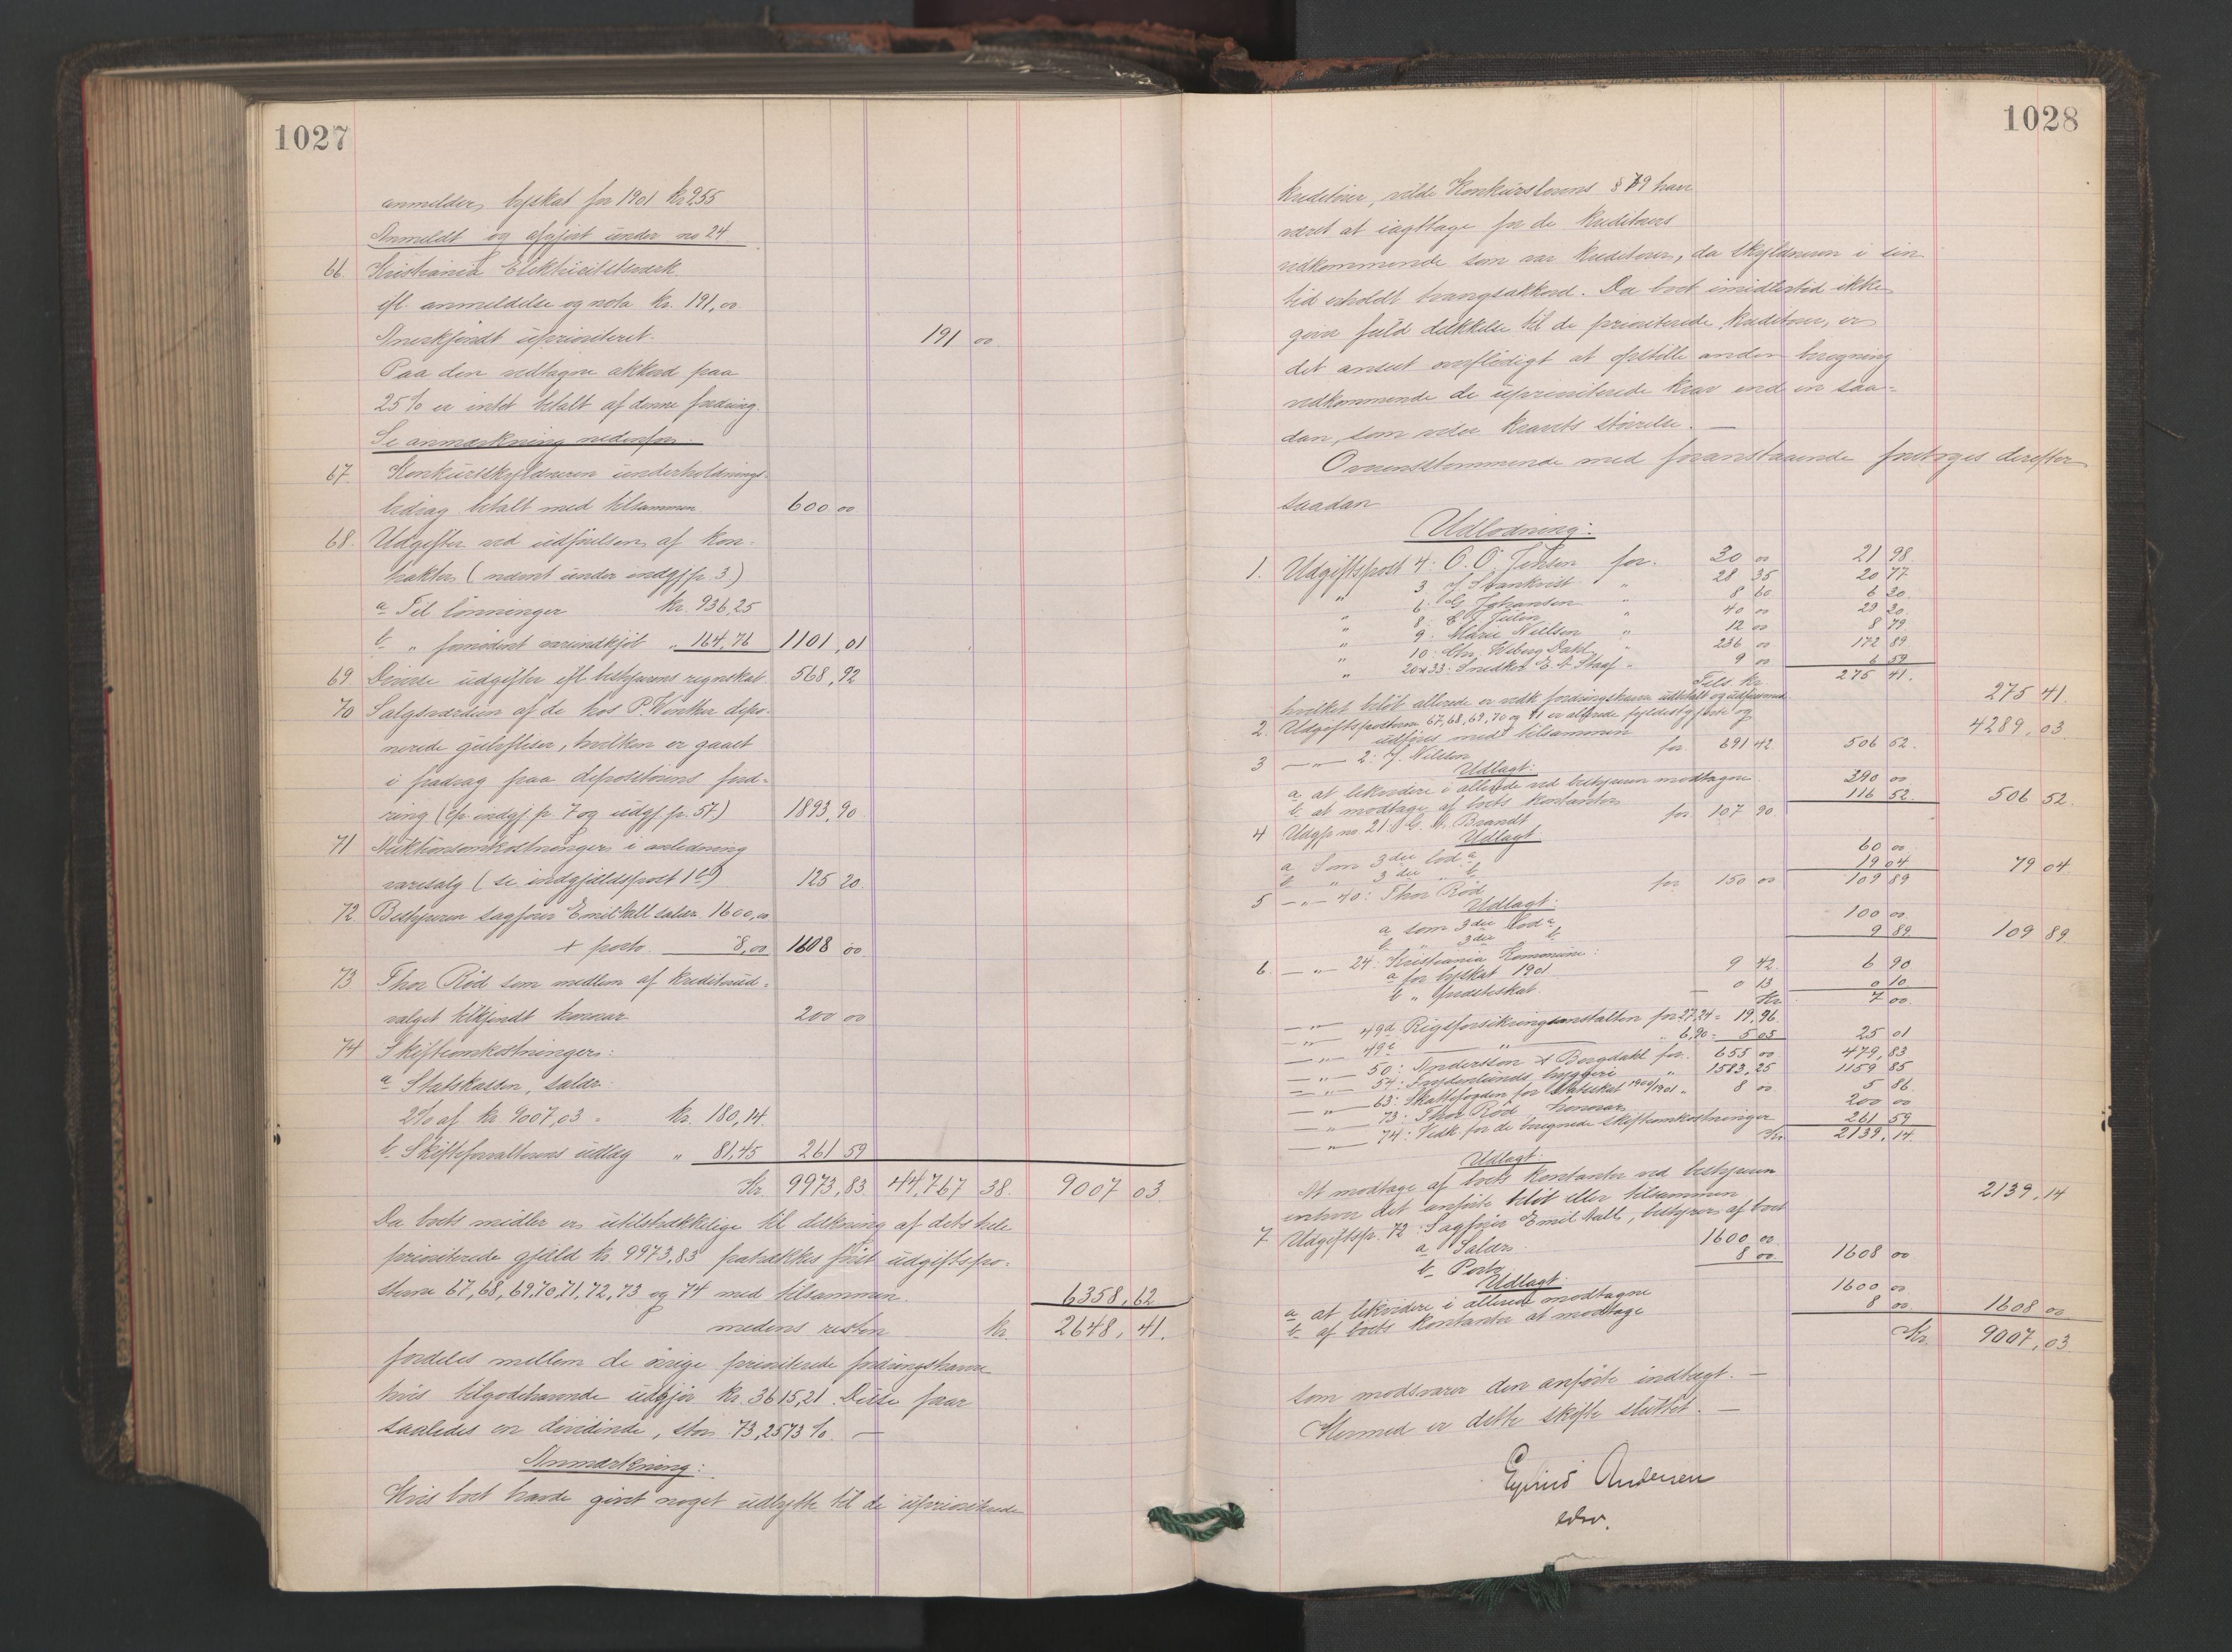 1027
anmelder, byskat for 1901 kr 255
Anmeldt og afgjort under no 24
66 Kristiania Elektricitetsværk
ifl. anmeldelse og nota kr. 191,00
Anerkjendt uprioriteret. 191 00
Paa den vedtagne akkord paa
25% er intet betalt af denne fordring.
Se anmærkning nedenfor.
67. Konkursskyldneren underholdnings-
bidrag betalt med tilsammen 600 00
68. Udgifter ved udførelsen af kon-
trakter (nævnt under indgj pr. 3)
a Til lønninger kr. 936,25
b " fornødent vareindkjøb " 164,76 1101,01
69 Diverse udgifter ifl. bestyrerens regnskab 568,92
70 Salgsværdien af de hos P. Winther depo-
nerede gulvfliser, hvilken er gaaet
i fradrag paa depositørens ford-
ring (cfr. indgj. p. 7 og udgj. p. 57) 1893,90
71 Auktionsomkostninger i anledning
varesalg (se indgjældspost 1 b) 125 20
72. Bestyreren sagfører Emil Aall salær 1600,00
+ porto 8,00 1608 00
73 Thor Rød som medlem af kreditorud-
valget tilkjendt honorar 200 00
74 Skifteomkostninger:
a Statskassen, salær:
2% af kr 9007,03 = kr. 180,14.
b. Skifteforvalterens udlæg " 81,45 261 59
Kr. 9973,83 44,767 38. 9007 03.
Da boets midler er utilstrækkelige til dækning af dets hele
prioriterede gjæld kr. 9973,83 fratrækkes først udgiftspo-
sterne 67, 68, 69, 70, 71, 72, 73 og 74 med tilsammen 6358,62
medens resten kr. 2648,41.
fordeles mellem de øvrige prioriterede fordringshavere
hvis tilgodehavende udgjør kr. 3615,21. Disse faar
saaledes en dividende, stor 73,2573 %. —
Anmærkning:
Hvis boet havde givet noget udbytte til de uprioriterede
1028
kreditorer, vilde Konkurslovens § 79 have
været at iagttage for de kreditorers
vedkommende som var kreditorer, da skyldneren i sin
tid erholdt tvangsakkord. Da boet imidlertid ikke
giver fuld dækkelse til de prioriterede kreditorer, er
det anseet overflødigt at opstille anden beregning
vedkommende de uprioriterede krav end en saa-
dan, som viser kravets størrelse. —
Overensstemmende med foranstaaende foretages derefter
saadan
Udlodning:
1. Udgiftspost 4: O. O. Jensen for. 30 00 21 98
" 3 J. Svankvist " 28 35 20 77
" 6: G. Johansen " 8 60 6 30
" 8: E. J. Julin " 40 00 29 30.
" 9: Marie Nielsen " 12 00 8 79
" 10: Chr. Weberg Dahl " 236 00 172 89
" 20 & 33: Snedker E. A. Staaf " 9 00 6 59
Tils. kr. 275 41.
hvilket beløb allerede er vedk. fordringshavere udbetalt og udføres med 275 41.
2. Udgiftsposterne 67, 68, 69, 70 og 71 er allerede fyldestgjorte og
udføres med tilsammen 4289,03
3 — " — 2: J. Nilsen for 691 42. 506 52.
Udlagt:
a at likvidere i allerede ved bestyreren modtagne 390 00
b at modtage af boets kontanter 116 52. 506 52.
4 Udgp no 21: C. M. Brandt for 107 90
Udlagt:
a Som 3die lod a 60 00
b " 3die " b 19 04 79 04
5 — " — 40: Thor Rød for 150 00 109 89
Udlagt:
a som 3die lod a 100 00
b " 3die b 9 89 109 89
6. — " — 24: Kristiania Kommune:
a for byskat 1901 9 42. 6 90
b " Indtskat. 0 13 0 10
Kr 7 00.
— " — 49a Rigsforsikringsanstalten for 27,24 = 19,96
— " — 49b " " 6,90 = 5 05 25 01
— " — 50: Anderssen & Bergdahl for. 655 00 479,83
— " — 54: Frydenlunds bryggeri " 1583,25 1159 85
— " — 63: Skattefogden for Statsskat 1900/1901 " 8 00 5 86
— " — 73: Thor Rød, honorar 200 00
— " — 74: Vedk. for de beregnede skifteomkostninger 261 59
Kr. 2139,14.
Udlagt:
At modtage af boets kontanter ved bestyreren
enhver det anførte beløb eller tilsammen 2139,14
7. Udgiftsp. 72: Sagfører Emil Aall, bestyrer af boet
a Salær. 1600 00
b Porto 8 00 1608 00
Udlagt:
a at likvidere i allerede modtagne 1600 00
b af boets kontanter at modtage 8 00 1608 00
Kr. 9007,03
som modsvarer den anførte indtægt. —
Hermed er dette skifte sluttet. —
Eyvind Andersen